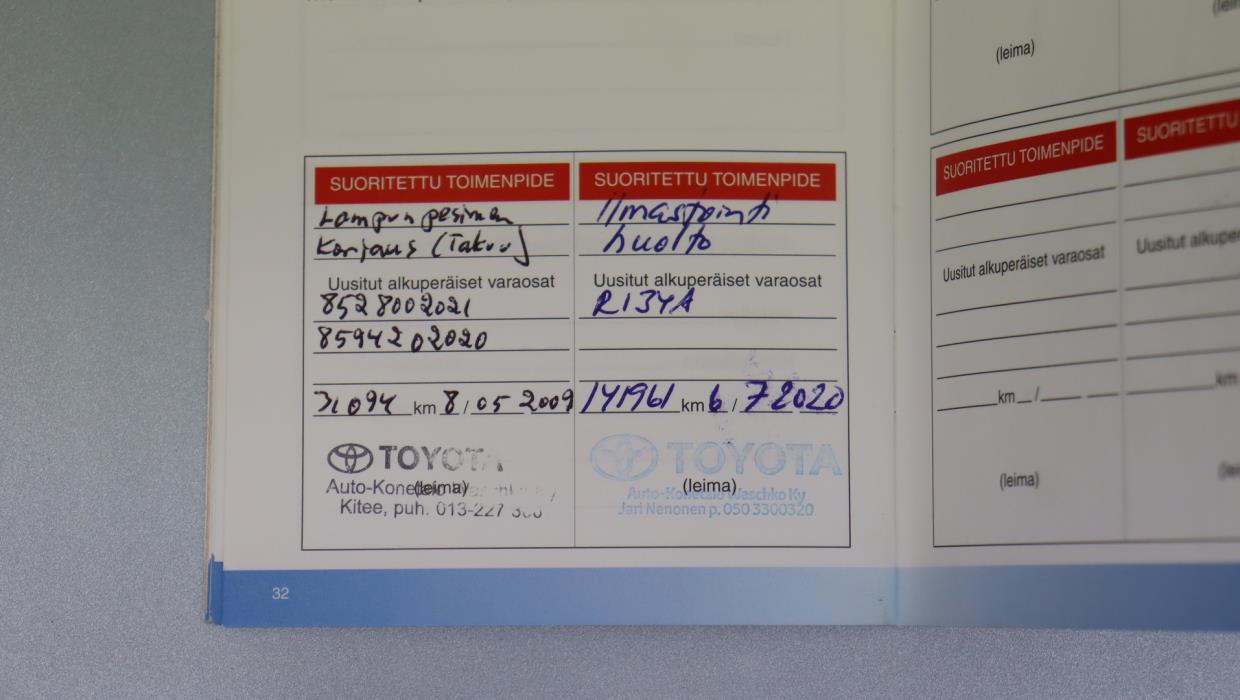 (leima)
SUORITETTU TOIMENPIDE
Lampun pesimen
Korjaus (Takuu)
Uusitut alkuperäiset varaosat
8528002021
8594202020
31094 km 8 / 05 2009
TOYOTA
Auto-Konetalo
(leima)
Kitee, puh. 013-227
SUORITETTU TOIMENPIDE
Ilmastointi
huolto
Uusitut alkuperäiset varaosat
R134A
141961 km 6 / 7 2020
TOYOTA
Auto-Konetalo Waschko Ky
(leima)
Jari Nenonen p. 050 3300320
32
SUORITETTU TOIMENPIDE
Uusitut alkuperäiset varaosat
km /
(leima)
SUORITETTU
Uusitut
km